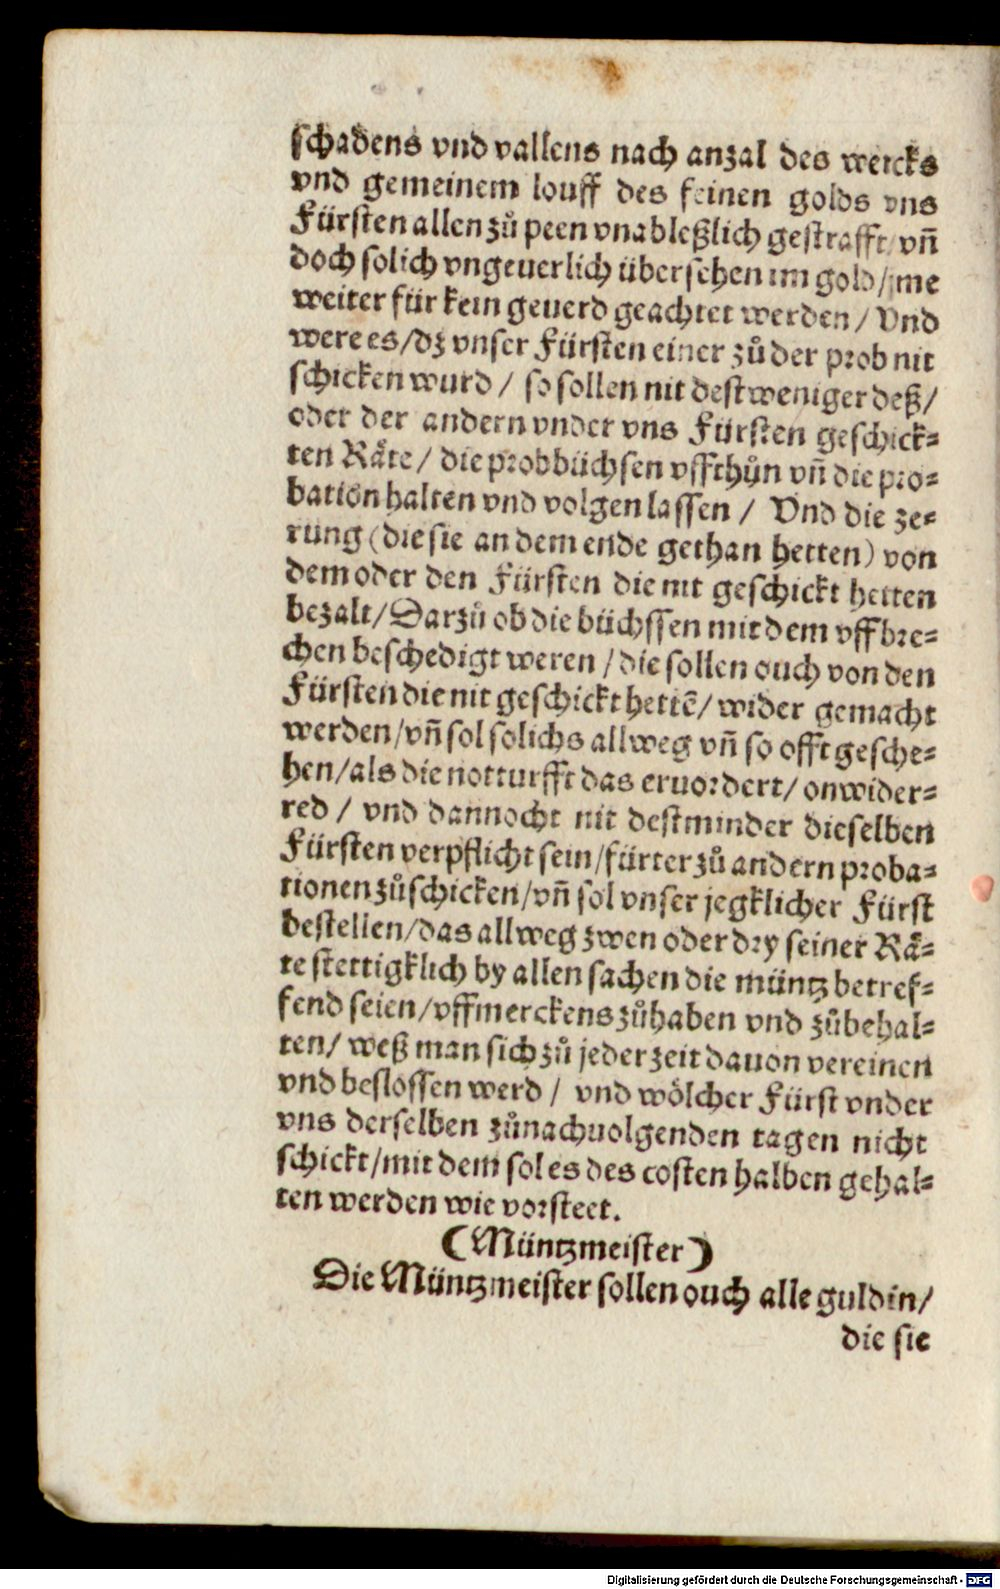 schadens vnd vallens nach anzal des wercks
vnd gemeinem louff des feinen golds vns
Fürsten allen zů peen vnableßlich gestrafft/ vñ
doch solich vngeuerlich übersehen im gold/ nie
weiter für kein geuerd geachtet werden / Vnd
were es/dz vnser Fürsten einer zů der prob nit
schicken wurd / so sollen nit destweniger deß/
oder der andern vnder vns Fürsten geschick-
ten Räte / die probbüchsen vffthůn vñ die pro-
bation halten vnd volgen lassen / Vnd die ze-
rung (die sie an dem ende gethan hetten) von
dem oder den Fürsten die nit geschickt hetten
bezalt/ Darzů ob die büchssen mit dem vffbre-
chen beschedigt weren / die sollen ouch von den
Fürsten die nit geschickt hettē/ wider gemacht
werden/vñ sol solichs allweg vñ so offt gesche-
hen/als die notturfft das eruordert/ onwider-
red / vnd dannocht nit destminder dieselben
Fürsten verpflicht sein/fürter zů andern proba-
tionen zůschicken/vñ sol vnser jegklicher Fürst
bestellen/das allweg zwen oder dry seiner Rä-
te stettigklich by allen sachen die müntz betref-
fend seien/vffmerckens zůhaben vnd zůbehal-
ten/ weß man sich zů jeder zeit dauon vereinen
vnd beslossen werd / vnd wölcher Fürst vnder
vns derselben zůnachuolgenden tagen nicht
schickt/mit dem sol es des costen halben gehal-
ten werden wie vorsteet.
(Müntzmeister)
Die Müntzmeister sollen ouch alle guldin/
die sie
Digitalisierung gefördert durch die Deutsche Forschungsgemeinschaft - DFG